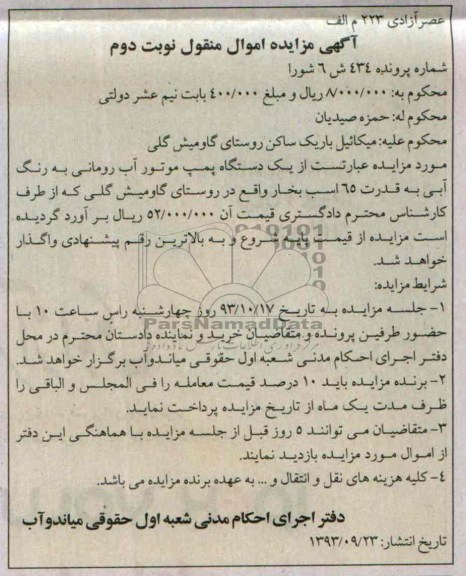 عصرآزادی ۲۲۳ م الف
آگهی مزایده اموال منقول نوبت دوم
شماره پرونده ۴۳۴ ش ۶ شورا
محکوم به: ۸/۰۰۰/۰۰۰ ریال و مبلغ ۴۰۰/۰۰۰ بابت نیم عشر دولتی
محکوم له: حمزه صیدیان
محکوم علیه: میکائیل باریک ساکن روستای گاومیش گلی
مورد مزایده عبارتست از یک دستگاه پمپ موتور آب رومانی به رنگ
آبی به قدرت ۶۵ اسب بخار واقع در روستای گاومیش گلی که از طرف
کارشناس محترم دادگستری قیمت آن ۵۲/۰۰۰/۰۰۰ ریال بر آورد گردیده
است مزایده از قیمت پایه شروع و به بالاترین رقم پیشنهادی واگذار
خواهد شد.
شرایط مزایده:
۱- جلسه مزایده به تاریخ ۹۳/۱۰/۱۷ روز چهارشنبه راس ساعت ۱۰ با
حضور طرفین پرونده و متقاضیان خرید و نماینده دادستان محترم در محل
ParsNamadData
دفتر اجرای احکام مدنی شعبه اول حقوقی میاندوآب برگزار خواهد شد.
۲- برنده مزایده باید ۱۰ درصد قیمت معامله را فی المجلس و الباقی را
ظرف مدت یک ماه از تاریخ مزایده پرداخت نماید.
۳- متقاضیان می توانند ۵ روز قبل از جلسه مزایده با هماهنگی این دفتر
از اموال مورد مزایده بازدید نمایند.
۴- کلیه هزینه های نقل و انتقال و ... به عهده برنده مزایده می باشد.
دفتر اجرای احکام مدنی شعبه اول حقوقی میاندوآب
تاریخ انتشار: ۱۳۹۳/۰۹/۲۳